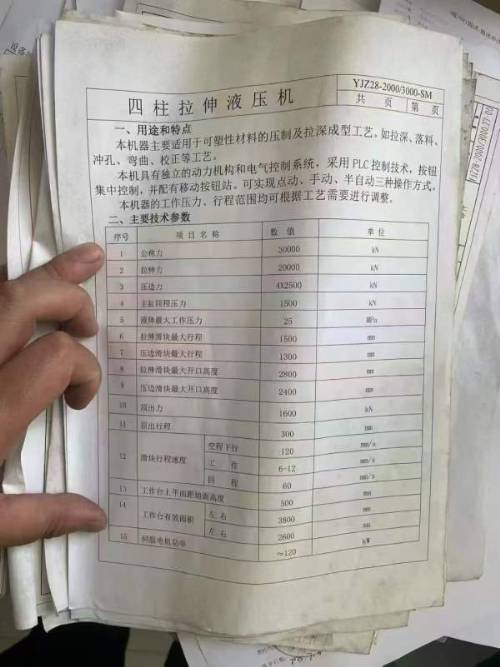 四柱拉伸液压机
YJZ28-2000/3000-SM
共 页 第 页
一、用途和特点
本机器主要适用于可塑性材料的压制及拉深成型工艺，如拉深、落料、
冲孔、弯曲、校正等工艺。
本机具有独立的动力机构和电气控制系统，采用PLC控制技术，按钮
集中控制，并配有移动按钮站。可实现点动、手动、半自动三种操作方式。
本机器的工作压力、行程范围均可根据工艺需要进行调整。
二、主要技术参数
序号 项目名称 数值 单位
1 公称力 30000 kN
2 拉伸力 20000 kN
3 压边力 4X2500 kN
4 主缸回程压力 1500 kN
5 液体最大工作压力 25 MPa
6 拉伸滑块最大行程 1500 mm
7 压边滑块最大行程 1300 mm
8 拉伸滑块最大开口高度 2800 mm
9 压边滑块最大开口高度 2400 mm
10 顶出力 1600 kN
11 顶出行程 300 mm
12 滑块行程速度 空程下行 120 mm/s
工 作 6-12 mm/s
回 程 60 mm/s
13 工作台上平面距地面高度 500 mm
14 工作台有效面积 左右 3800 mm
左右 2600 mm
15 伺服电机功率 ～120 kW